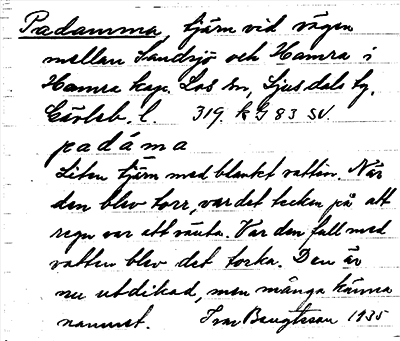 Padamma, tjärn vid vägen
mellan Sandsjö och Hamra i
Hamra kap. Los sn, Ljusdals tg.
Gävleb. l. 319. k G 83 SV.
padáma
Liten tjärn med blankt vatten. När
den blev torr, var det tecken på att
regn var att vänta. Var den full med
vatten blev det torka. Den är
nu utdikad, men många känna
namnet. Ivar Bengtsson 1935